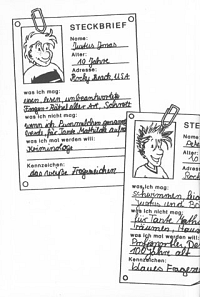 STECKBRIEF
Name:
Justus Jonas
Alter:
10 Jahre
Adresse:
Rocky Beach, USA
was ich mag:
essen, lesen, unbeantwortete
Fragen + Rätsel aller Art, Schrott
was ich nicht mag:
wenn ich Pummelchen genannt
werde, für Tante Mathilda
was ich mal werden will:
Kriminologe
Kennzeichen:
das weiße Fragezeichen
STECKB
Name:
Pete
Alter:
10 Ja
Adress
Rock
was ich mag:
schwimmen,
Justus und
was ich nicht mag:
für Tante Math
träumen, Haus
was ich mal werden will:
Profisportler
100 Jahre alt
Kennzeichen:
blaues Frageze